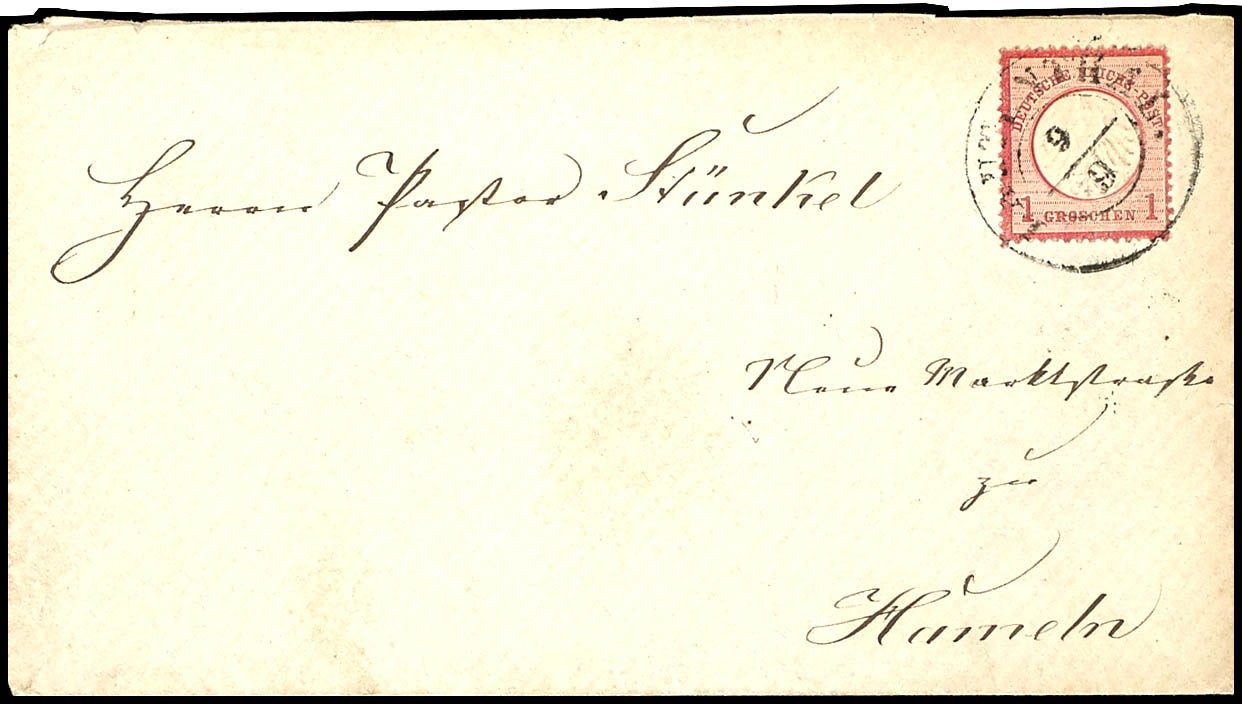 DEUTSCHE REICHS-POST
9
1 GROSCHEN 1
Herrn Pastor Stünkel
Neue Marktstraße
zu
Hameln